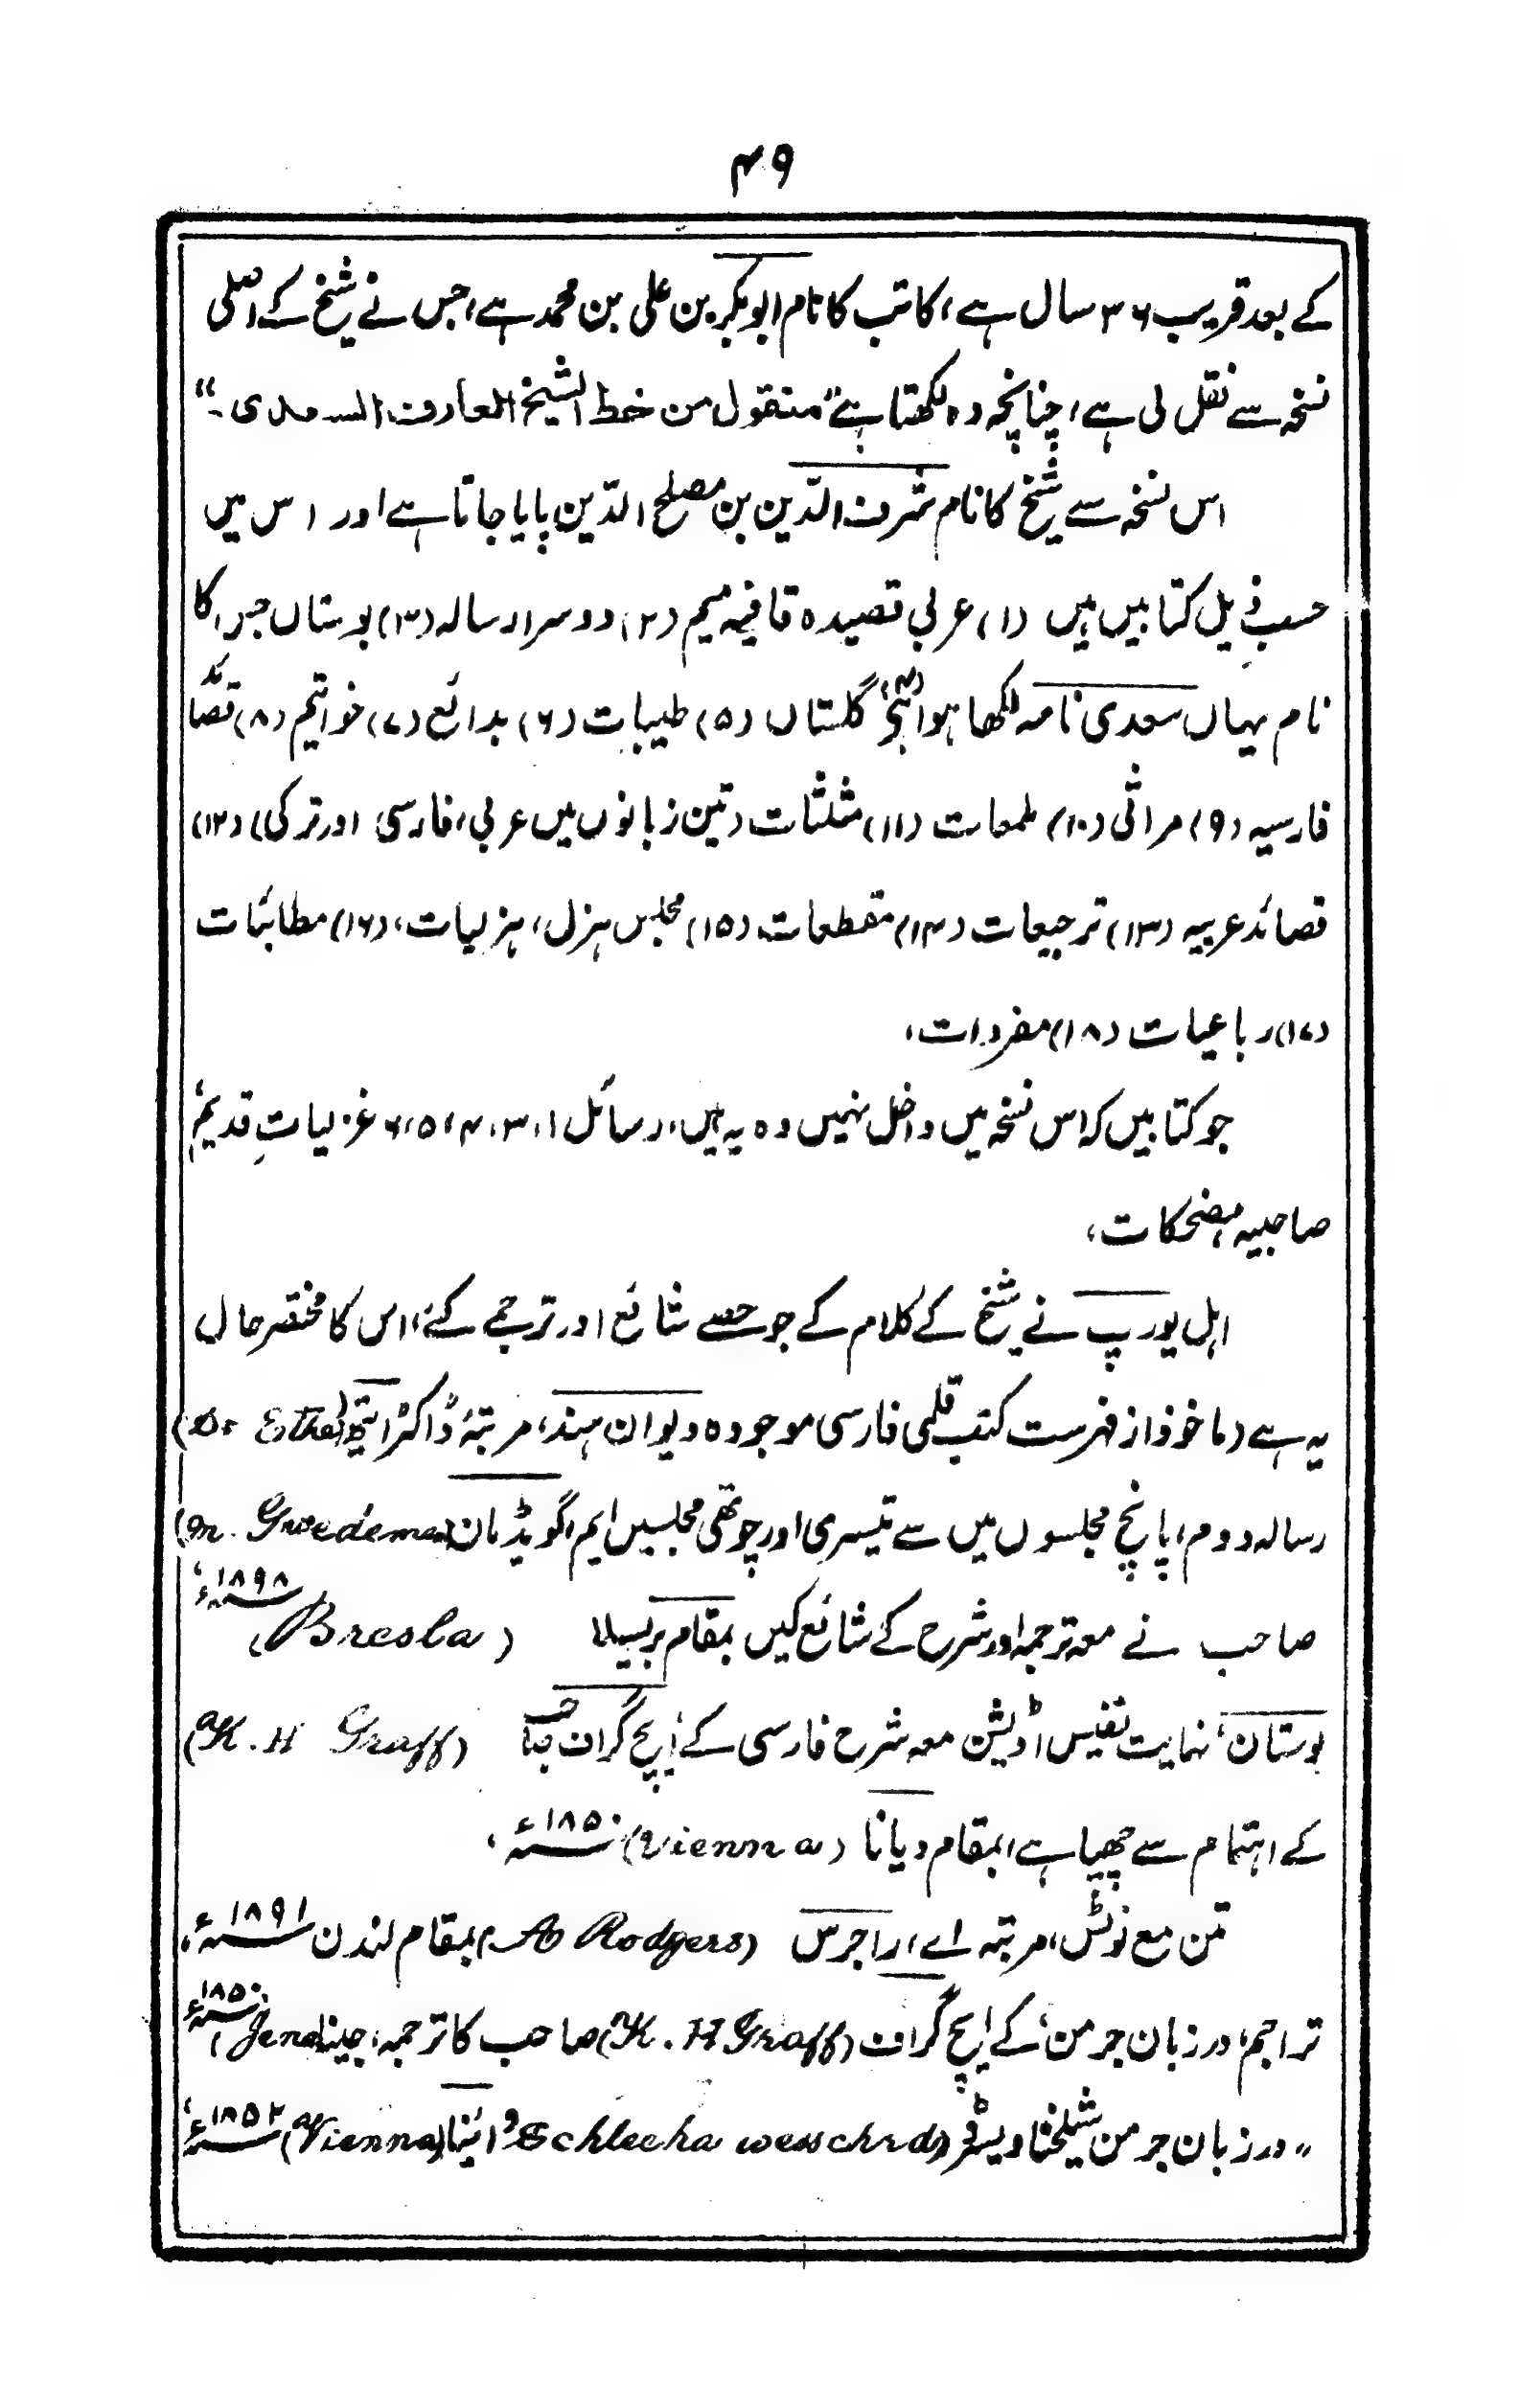 ۴۹
کے بعد قریب ۳۶ سال ہے، کاتب کا نام ابوبکر بن علی بن محمد ہے، جس نے شیخ کے اصلی
نسخہ سے نقل لی ہے، چنانچہ وہ لکھتا ہے "منقول من خط الشیخ العارف السعدی۔"
اس نسخہ سے شیخ کا نام شرف الدّین بن مصلح الدّین پایا جاتا ہے اور اس میں
حسب ذیل کتابیں ہیں (۱) عربی قصیدہ قافیہ میم (۲) دوسرا رسالہ (۳) بوستاں جس کا
نام یہاں سعدی نامہ لکھا ہوا ہی (۴) گلستاں (۵) طیبات (۶) بدائع (۷) خواتیم (۸) قصائد
فارسیہ (۹) مراثی (۱۰) ملمعات (۱۱) مثلثات (تین زبانوں میں عربی، فارسی، اور ترکی) (۱۲)
قصائد عربیہ (۱۳) ترجیعات (۱۴) مقطعات، (۱۵) مجلس ہزل، ہزلیات، (۱۶) مطائبات
(۱۷) رباعیات (۱۸) مفردات،
جو کتابیں کہ اس نسخہ میں داخل نہیں وہ یہ ہیں، رسائل ۱، ۳، ۴، ۵، ۶ غزلیاتِ قدیمہ،
صاحبیہ، مضحکات،
اہل یورپ نے شیخ کے کلام کے جو حصے شائع اور ترجمے کئے، اس کا مختصر حال
یہ ہے (ماخوذ از فہرست کتب قلمی فارسی موجودہ دیوان ہند، مرتبۂ ڈاکٹر ایتھے (Dr Ethe)
رسالہ دوم، پانچ مجلسوں میں سے تیسری اور چوتھی مجلسیں ایم، گویڈمان (m. Guedeman)
صاحب نے معہ ترجمہ اور شرح کے شائع کیں بمقام بریسلا (Bresla) ۱۸۹۸ء،
بوستان، نہایت نفیس اڈیشن معہ شرح فارسی کے ایچ گراف صاحب (K. H Graff)
کے اہتمام سے چھپا ہے، بمقام ویانا (Vienna) ۱۸۵۰ء،
متن مع نوٹس، مرتبہ اے، راجرس (A Rodgers) بمقام لندن ۱۸۹۱ء،
تراجم، در زبان جرمن، کے ایچ گراف (K. H Graff) صاحب کا ترجمہ، جینا (Jena) ۱۸۵۰ء،
〃 در زبان جرمن شیلخٹا ویسٹرڈ (Schlecha wesschrd) وائینا (Vienna) ۱۸۵۲ء،